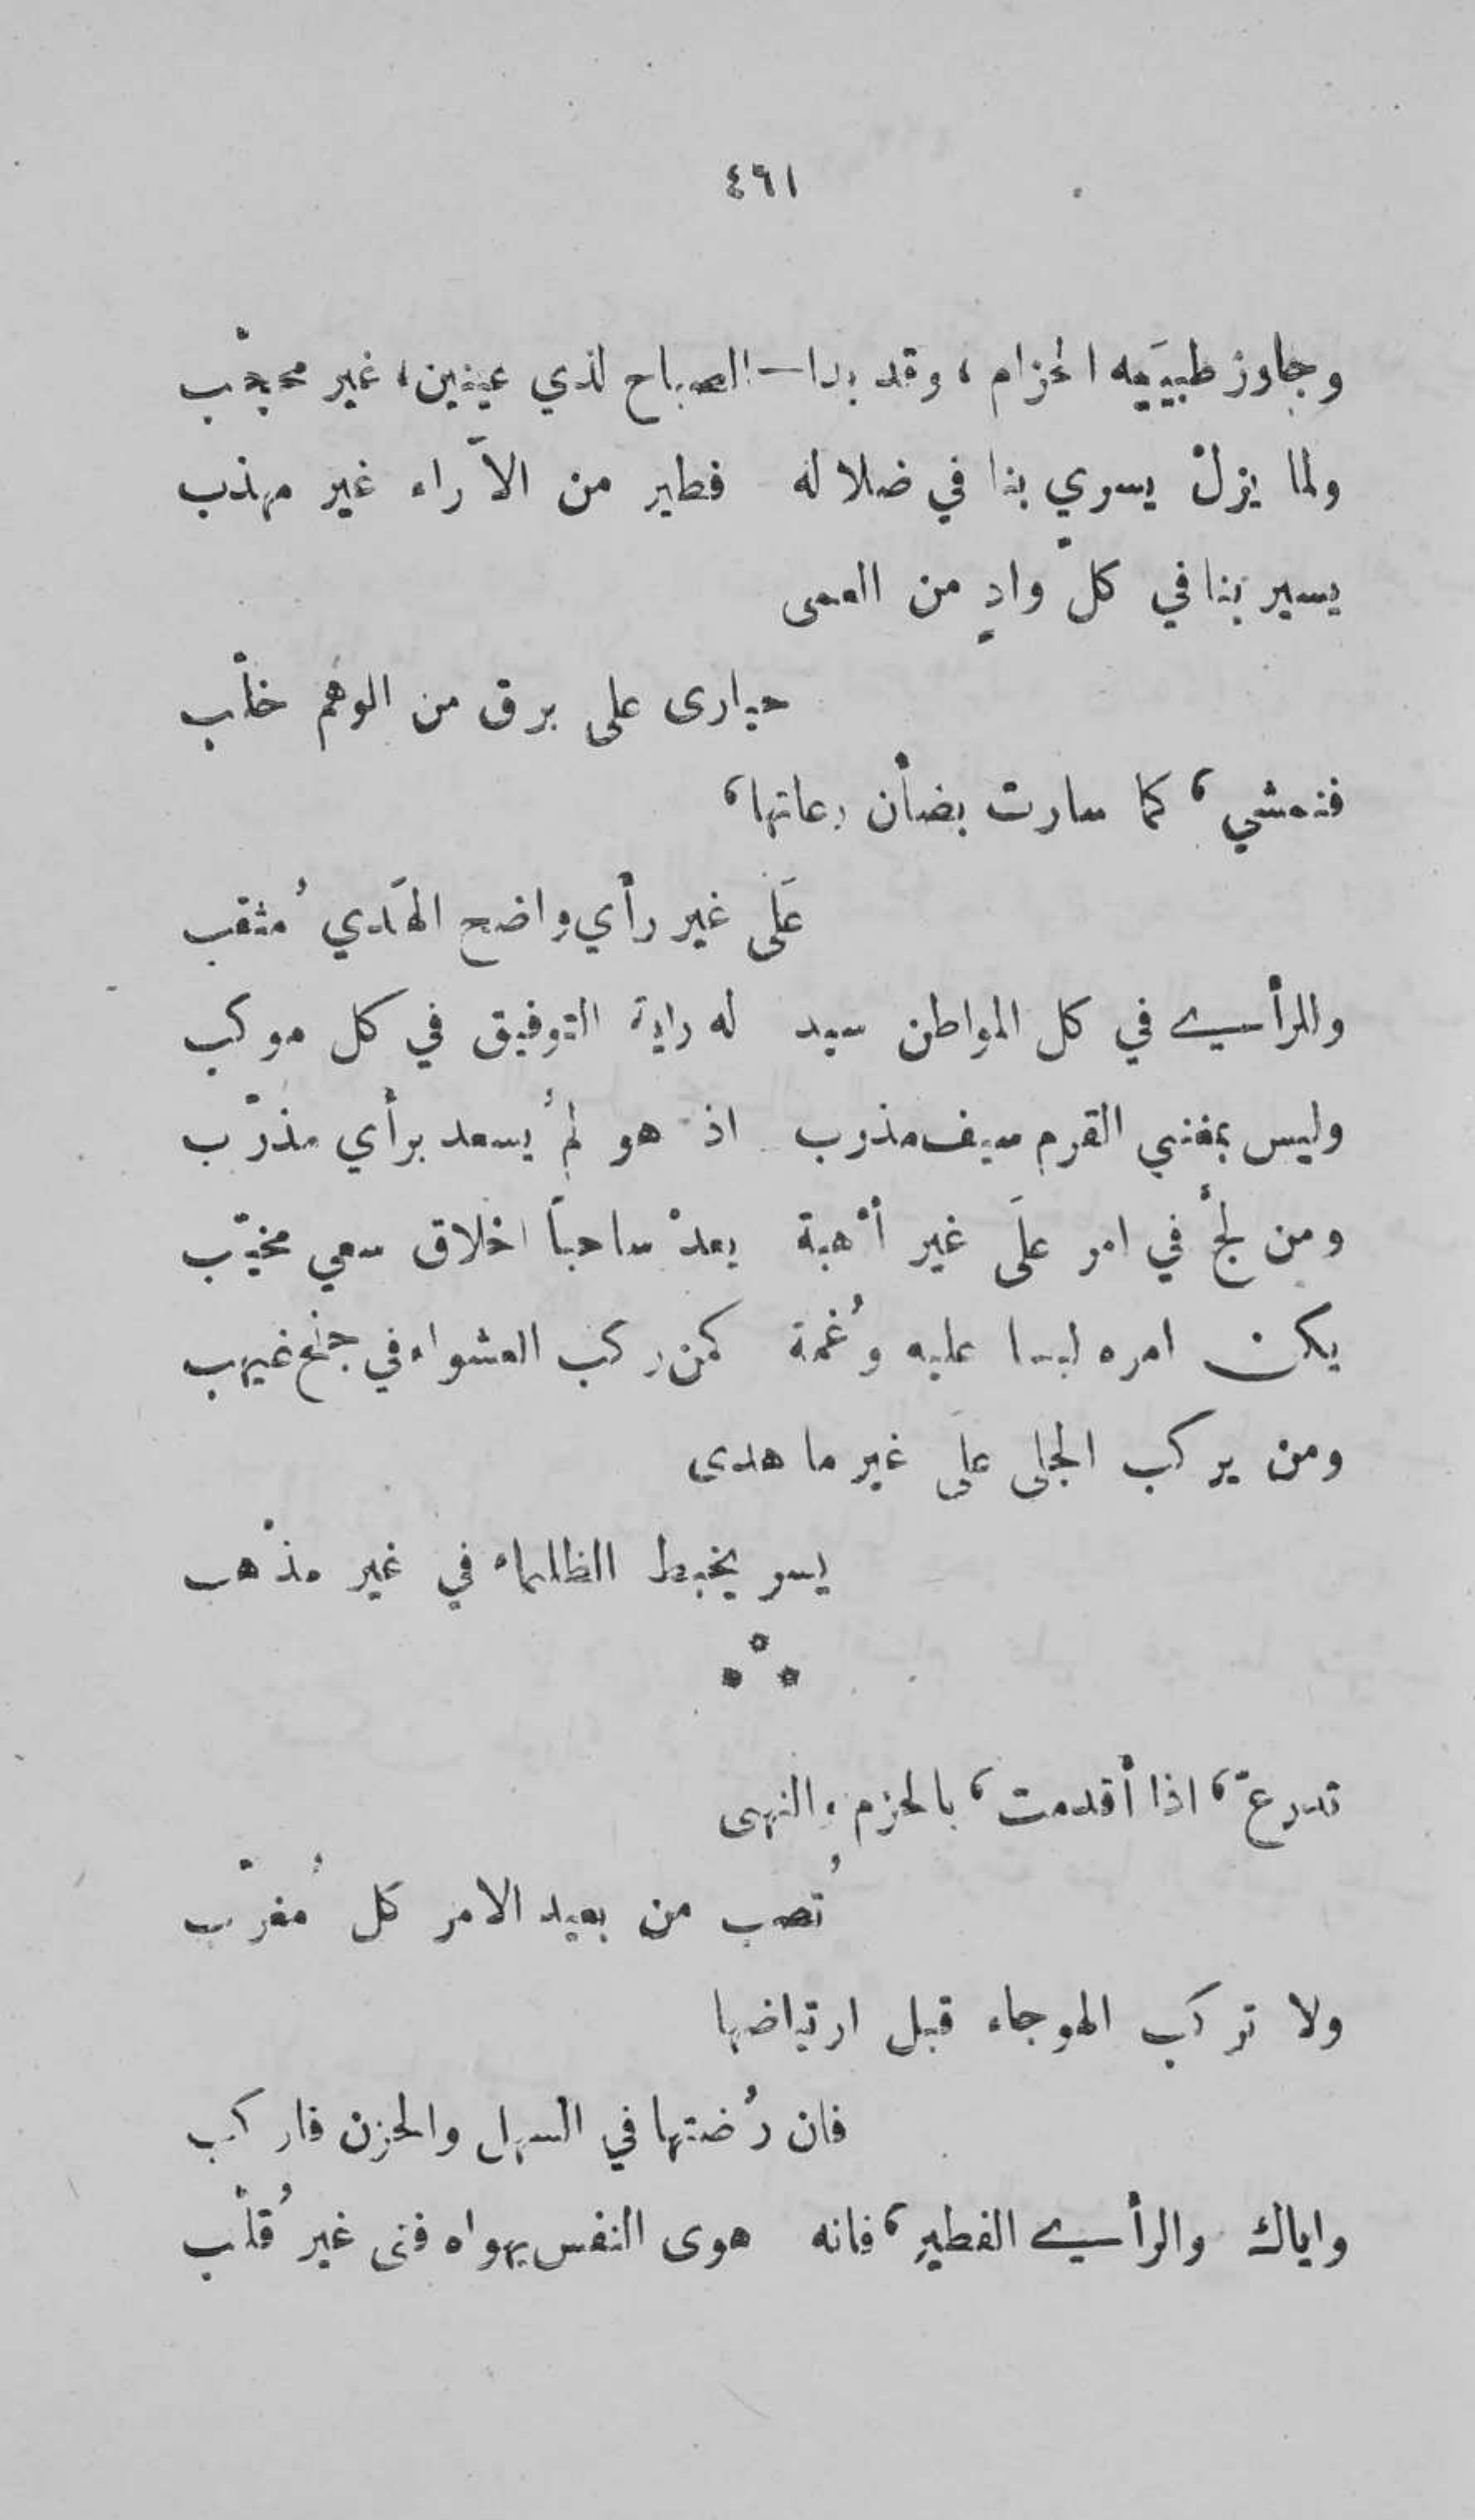 ٤٦١
وجاوز طبيَيه الحزام، وقد بدا الصباح لذي عينين، غير محجّب
ولما يزلْ يسري بنا في ضلاله فطير من الآراء غير مهذب
يسير بنا في كلّ وادٍ من العمى
حيارى على برق من الوهم خلّب
فنمشي، كما سارت بضأن رعاتها،
عَلَى غير رأي واضح الهَدي مُثقب
وللرأي في كل المواطن سيد له راية التوفيق في كل موكب
وليس بمغني القرم سيف مذرب اذ هو لم يُسعد برأي مذرّب
ومن لجَّ في امر علَى غير أُهبة يعدْ ساحباً اخلاق سعي مخيّب
يكن امره لبسا عليه وُغمة كمن ركب العشواء في جنح غيهب
ومن يركب الجلى علَى غير ما هدى
يسر يخبط الظلماء في غير مذْهب
تدرعّ، اذا أقدمت، بالحزم والنهى
تُصب من بعيد الامر كل مُغرّب
ولا تركب الهوجاء قبل ارتياضها
فان رُضتها في السهل والحزن فاركب
واياك والرأي الفطير، فانه هوى النفس يهواه فتى غير قُلّب